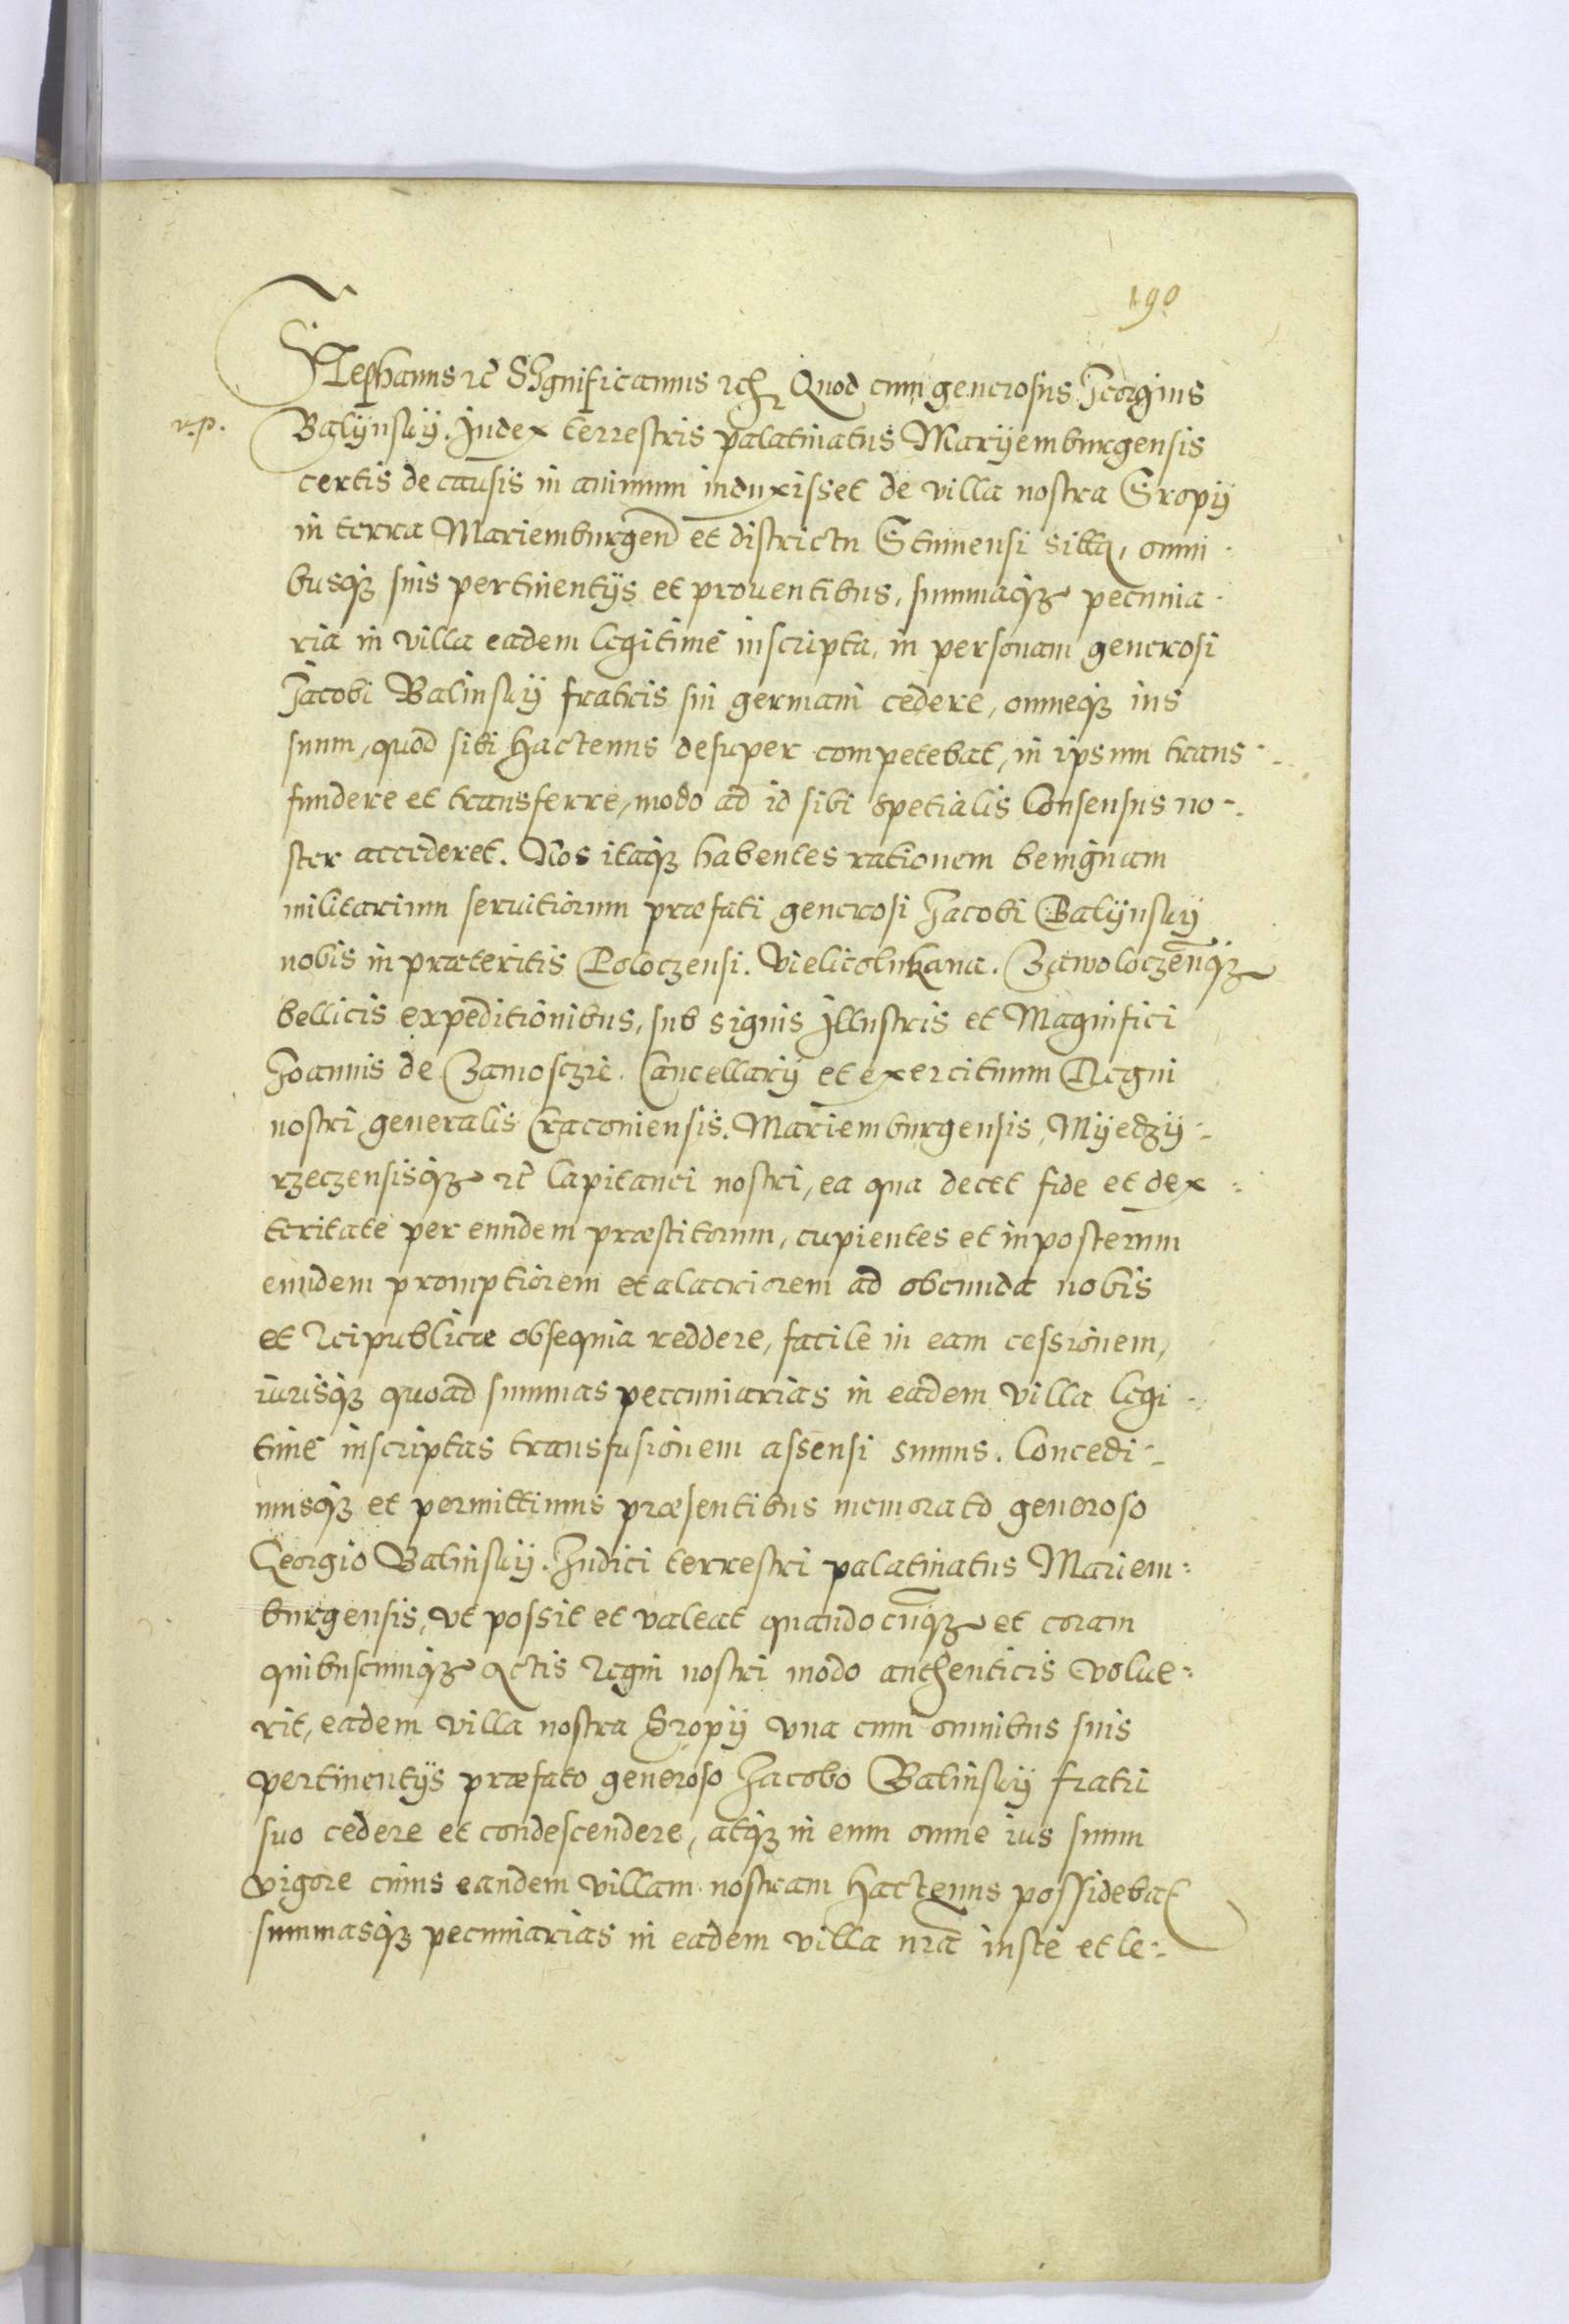 190
Stephanus etc̄ SIgnificamus etc̄ Quod cum generosus Georgius
r.p.
Balÿnskÿ. Iudex terrestris palatinatus Marÿemburgensis
certis de causis in animum induxisset de villa nostra Sropÿ
in terra Mariemburgen̄ et districtu Stumensi sitta, omni-
busqꝫ suis pertinentÿs et prouentibus, summaqꝫ pecunia-
ria in villa eadem legitime inscripta, in personam generosi
Jacobi Balinskÿ fratris sui germani cedere, omneqꝫ ius
suum, quod sibi hactenus desuper competebat, in ipsum trans-
fundere et transferre, modo ad id sibi spetialis Consensus no-
ster accederet. Nos itaqꝫ habentes rationem benignam
militarium seruitiorum præfati generosi Jacobi Balÿnskÿ
nobis in præteritis Poloczensi. Vielicolukana. Zawoloczen̄qꝫ
bellicis expeditionibus, sub signis Illustris et Magnifici
Joannis de Zamosczie. Cancellarÿ et exercituum Regni
nostri generalis Cracouiensis. Mariemburgensis, Mÿedzÿ-
rzeczensisqꝫ etc̄ Capitanei nostri, ea qua decet fide et dex-
teritate per eundem præstitorum, cupientes et in posterum
eundem promptiorem et alacriorem ad obeunda nobis
et Reipublicæ obsequia reddere, facile in eam cessionem,
iurisqꝫ quoad summas peccuniarias in eadem villa legi-
time inscriptas transfusionem assensi sumus. Concedi-
musqꝫ et permittimus præsentibus memorato generoso
Georgio Balinskÿ. Iudici terrestri palatinatus Mariem-
burgensis, vt possit et valeat quandocunqꝫ et coram
quibuscunqꝫ Actis Regni nostri modo authenticis volue-
rit, eadem villa nostra Sropÿ vna cum omnibus suis
pertinentÿs præfato generoso Jacobo Balinskÿ fratri
suo cedere et condescendere, atqꝫ in eum omne ius suum
vigore cuius eandem villam nostram hactenus possidebat
summasqꝫ pecuniarias in eadem villa nrā iuste et le-